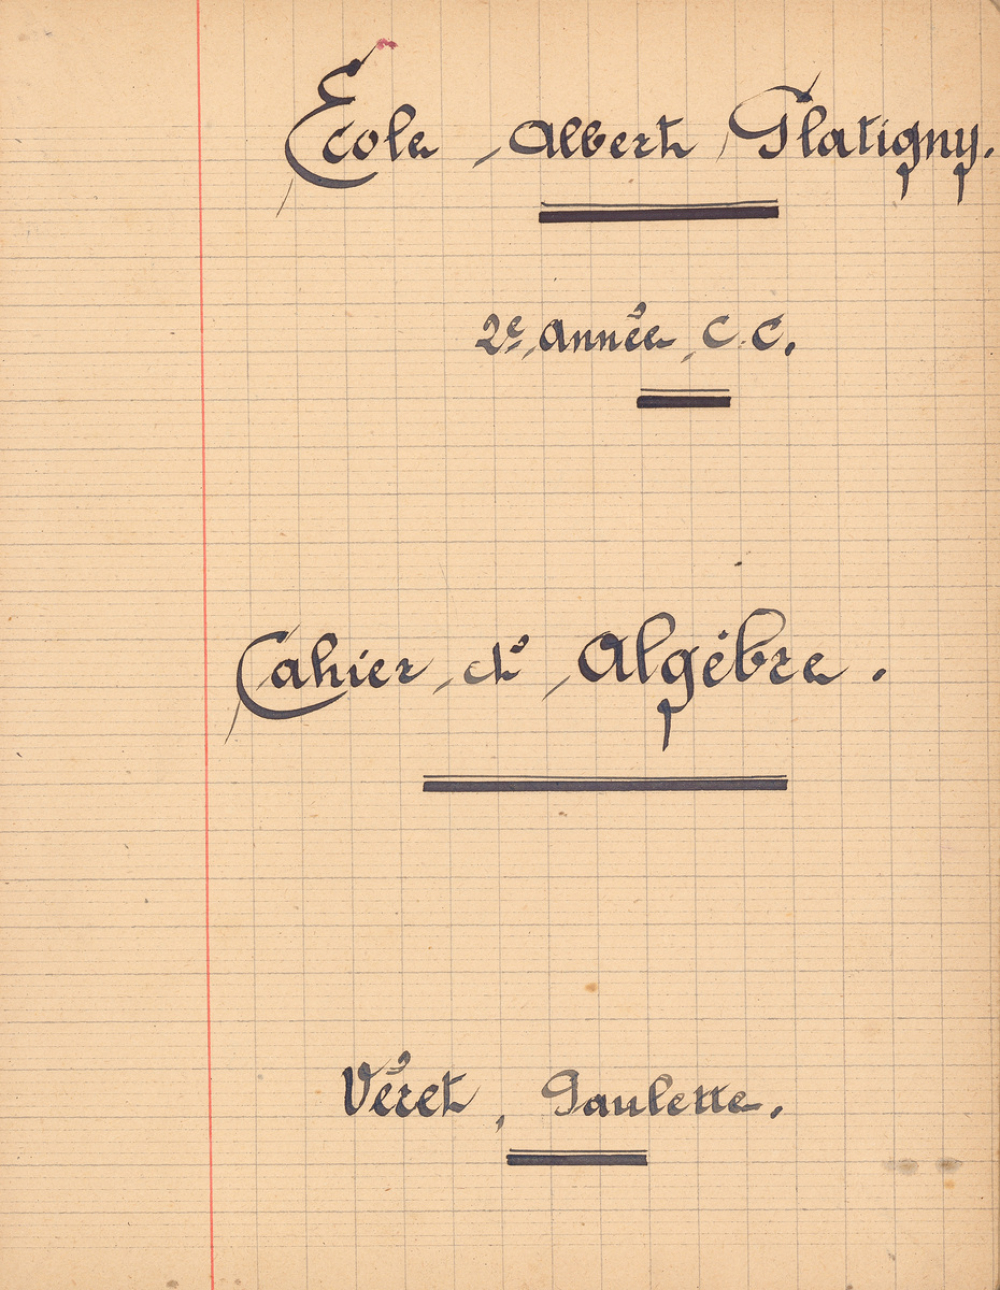 Ecole Albert Glatigny.
2e Année C.C.
Cahier d'Algèbre.
Véret, Paulette.